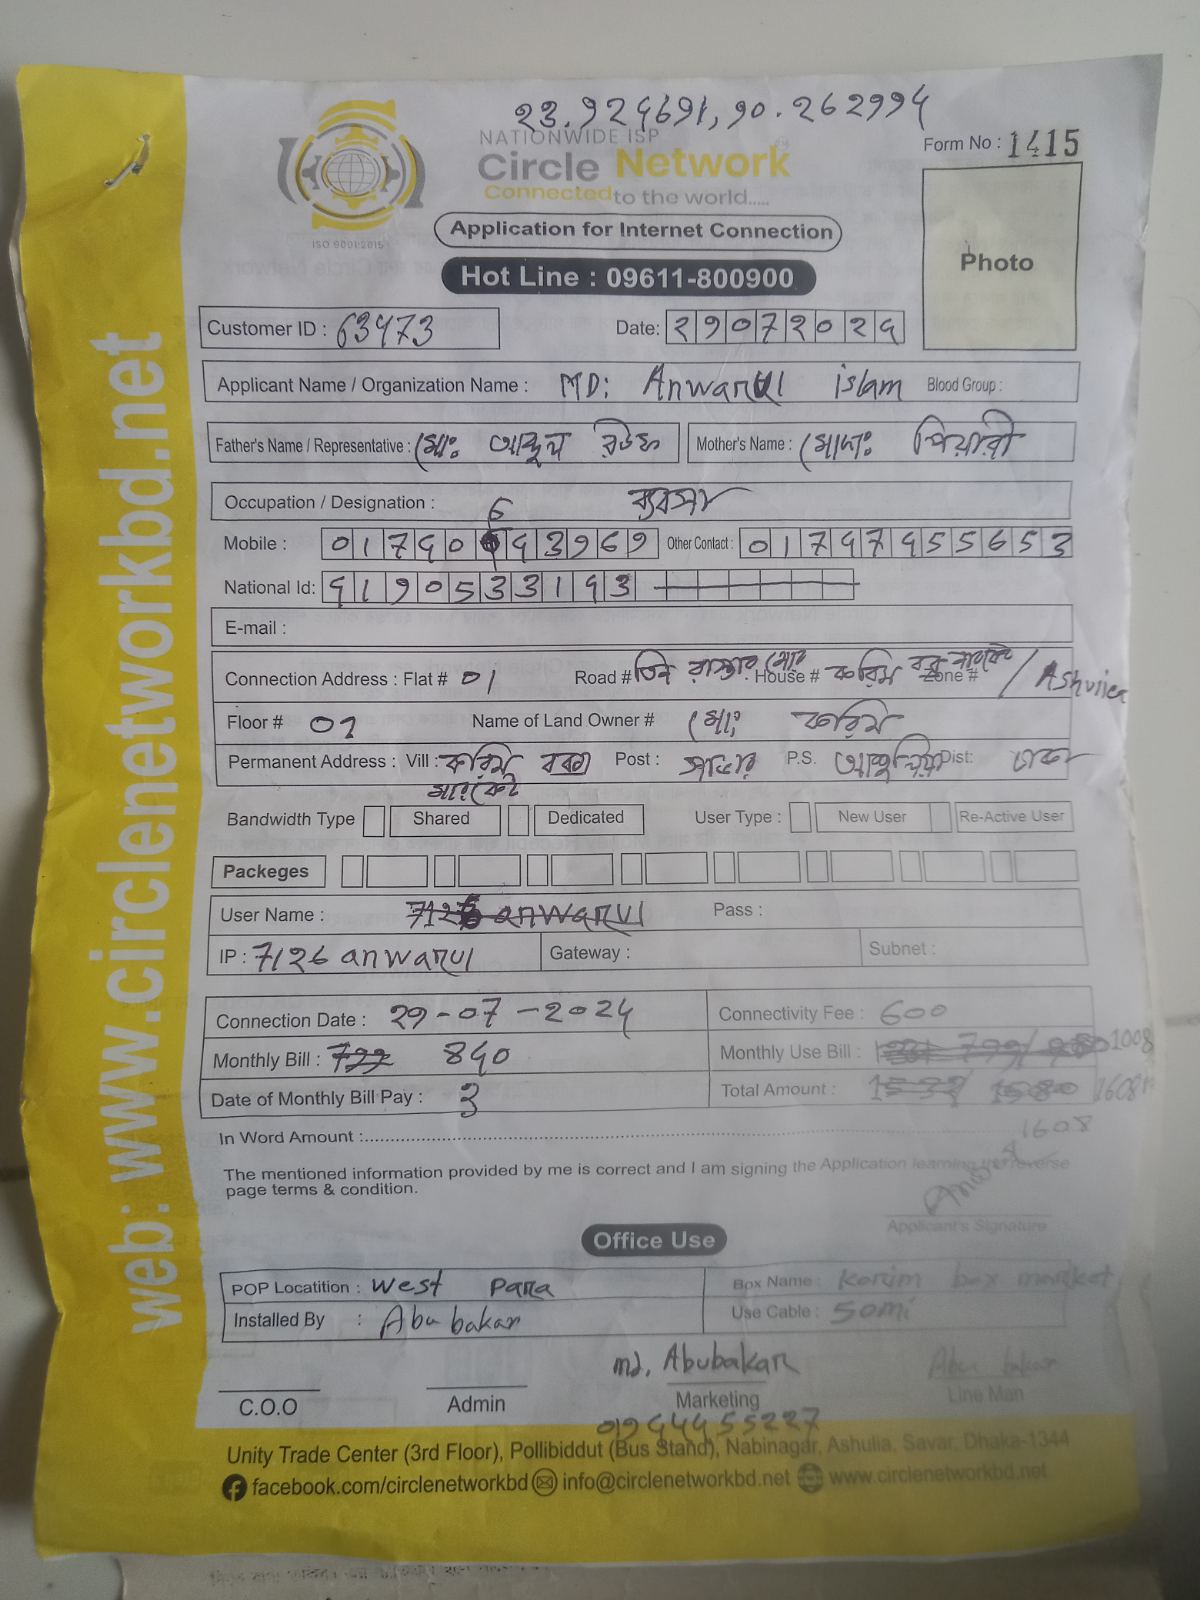 23.924691, 90.262994
NATIONWIDE ISP
Circle Network
Connected to the world.....
Form No : 1415
ISO 9001:2015
Application for Internet Connection
Hot Line : 09611-800900
Photo
Customer ID : 63473 Date: 29072024
Applicant Name / Organization Name : MD: Anwarul islam Blood Group :
Father's Name / Representative : মোঃ আব্দুল রউফ Mother's Name : মোসাঃ পিয়ারী
Occupation / Designation : ব্যবসা
6
Mobile : 01740 43969 Other Contact : 01747455653
National Id: 4190533143
E-mail :
Connection Address : Flat # 01 Road # তিন রাস্তার মোড় House # করিম বক্স মার্কেট Zone # / Ashulia
Floor # 02 Name of Land Owner # মোঃ করিম
Permanent Address : Vill : করিম বক্স Post : সাভার P.S. আশুলিয়া Dist: ঢাকা
মার্কেট
Bandwidth Type Shared Dedicated User Type : New User Re-Active User
Packeges
User Name : 7126 anwarul Pass :
IP : 7126 anwarul Gateway : Subnet :
Connection Date : 29-07-2024 Connectivity Fee : 600
Monthly Bill : 799 840 Monthly Use Bill : 1008
Date of Monthly Bill Pay : 3 Total Amount : 1532/ 1580 1608
In Word Amount :.......... 1608
The mentioned information provided by me is correct and I am signing the Application learning the reverse
page terms & condition.
Applicant's Signature
Office Use
POP Locatition : West Para Box Name : Karim box market
Installed By : Abu bakar Use Cable : 50mi
md. Abubakar Abu bakar
C.O.O Admin Marketing Line Man
01944455227
Unity Trade Center (3rd Floor), Pollibiddut (Bus Stand), Nabinagar, Ashulia, Savar, Dhaka-1344
facebook.com/circlenetworkbd info@circlenetworkbd.net www.circlenetworkbd.net
web: www.circlenetworkbd.net